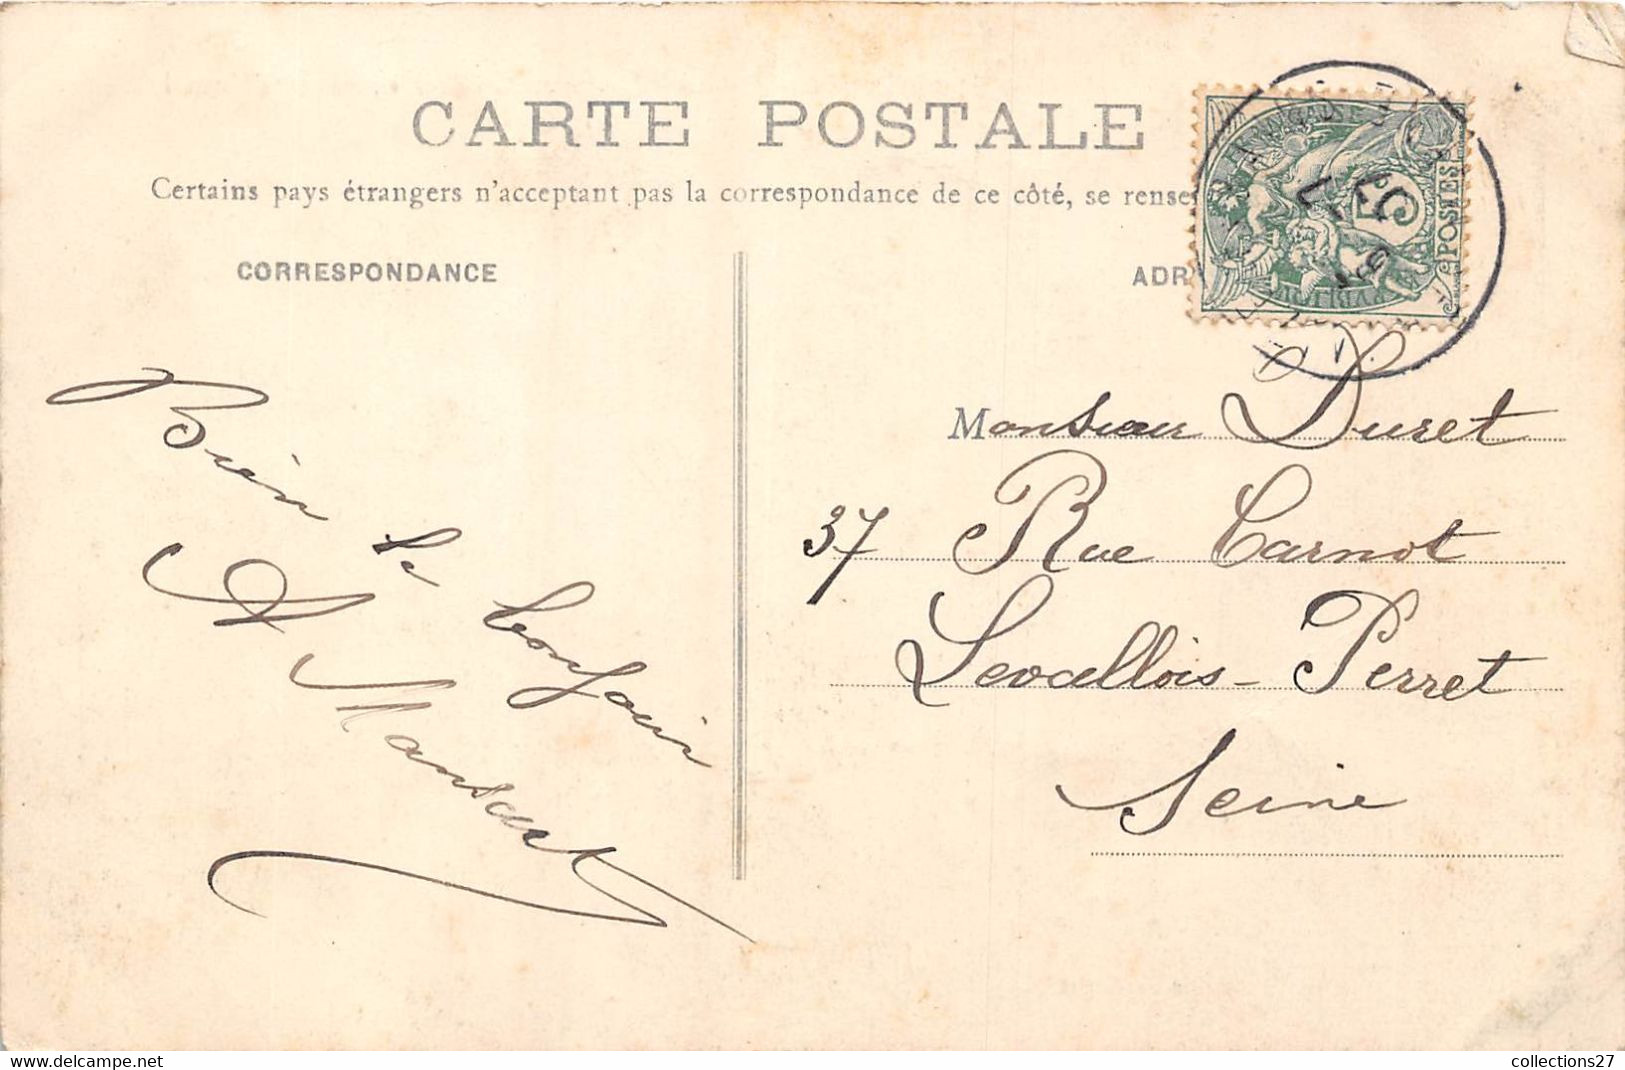 CARTE POSTALE
Certains pays étrangers n'acceptant pas la correspondance de ce côté, se rense
CORRESPONDANCE
ADR
POSTES
Bien le bonjour
A Mansart
Monsieur Duret
37 Rue Carnot
Levallois-Perret
Seine
www.delcampe.net
collections27